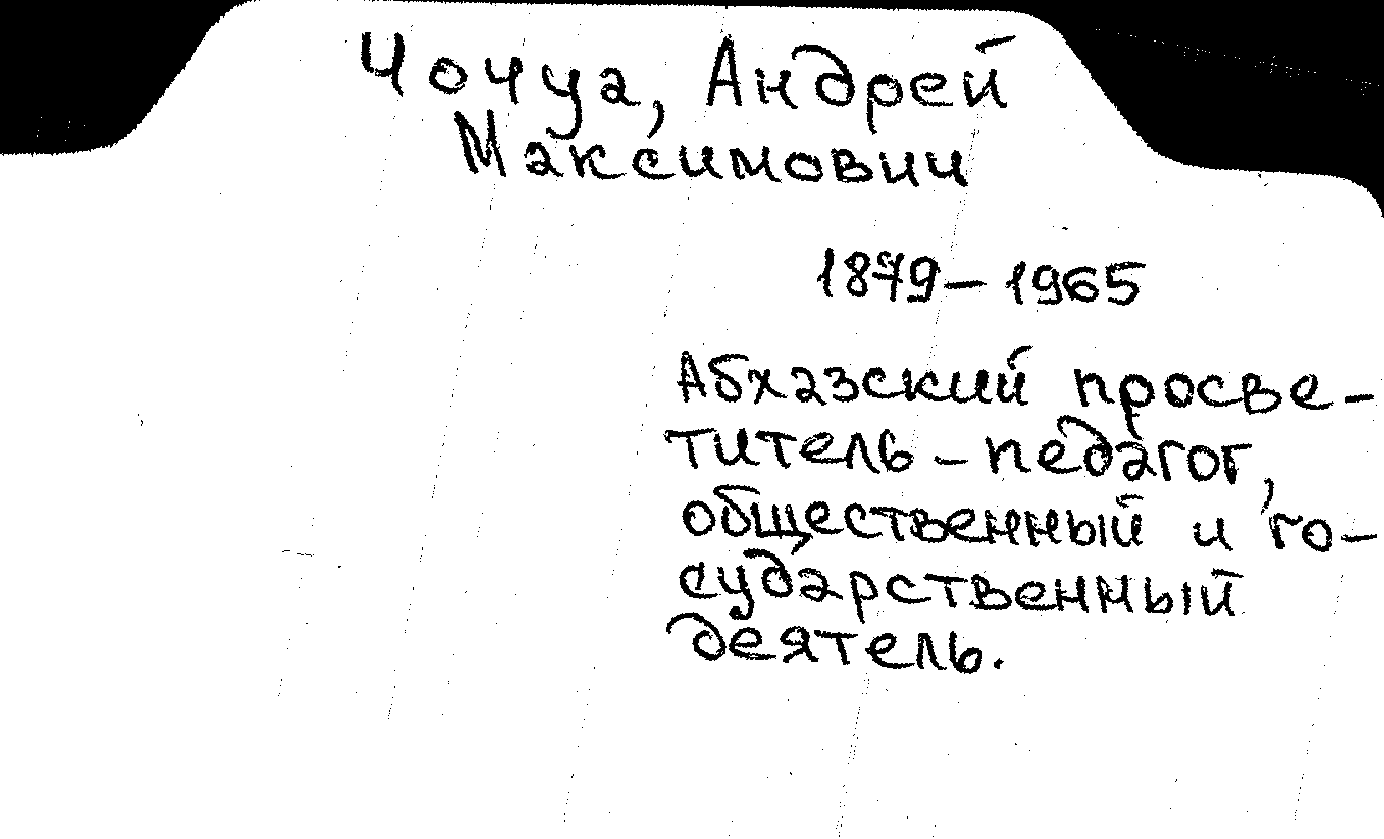 Чочуа, Андрей
Максимович
1879 – 1965
Абхазский просве-
титель – педагог,
общественный и го-
сударственный
деятель.